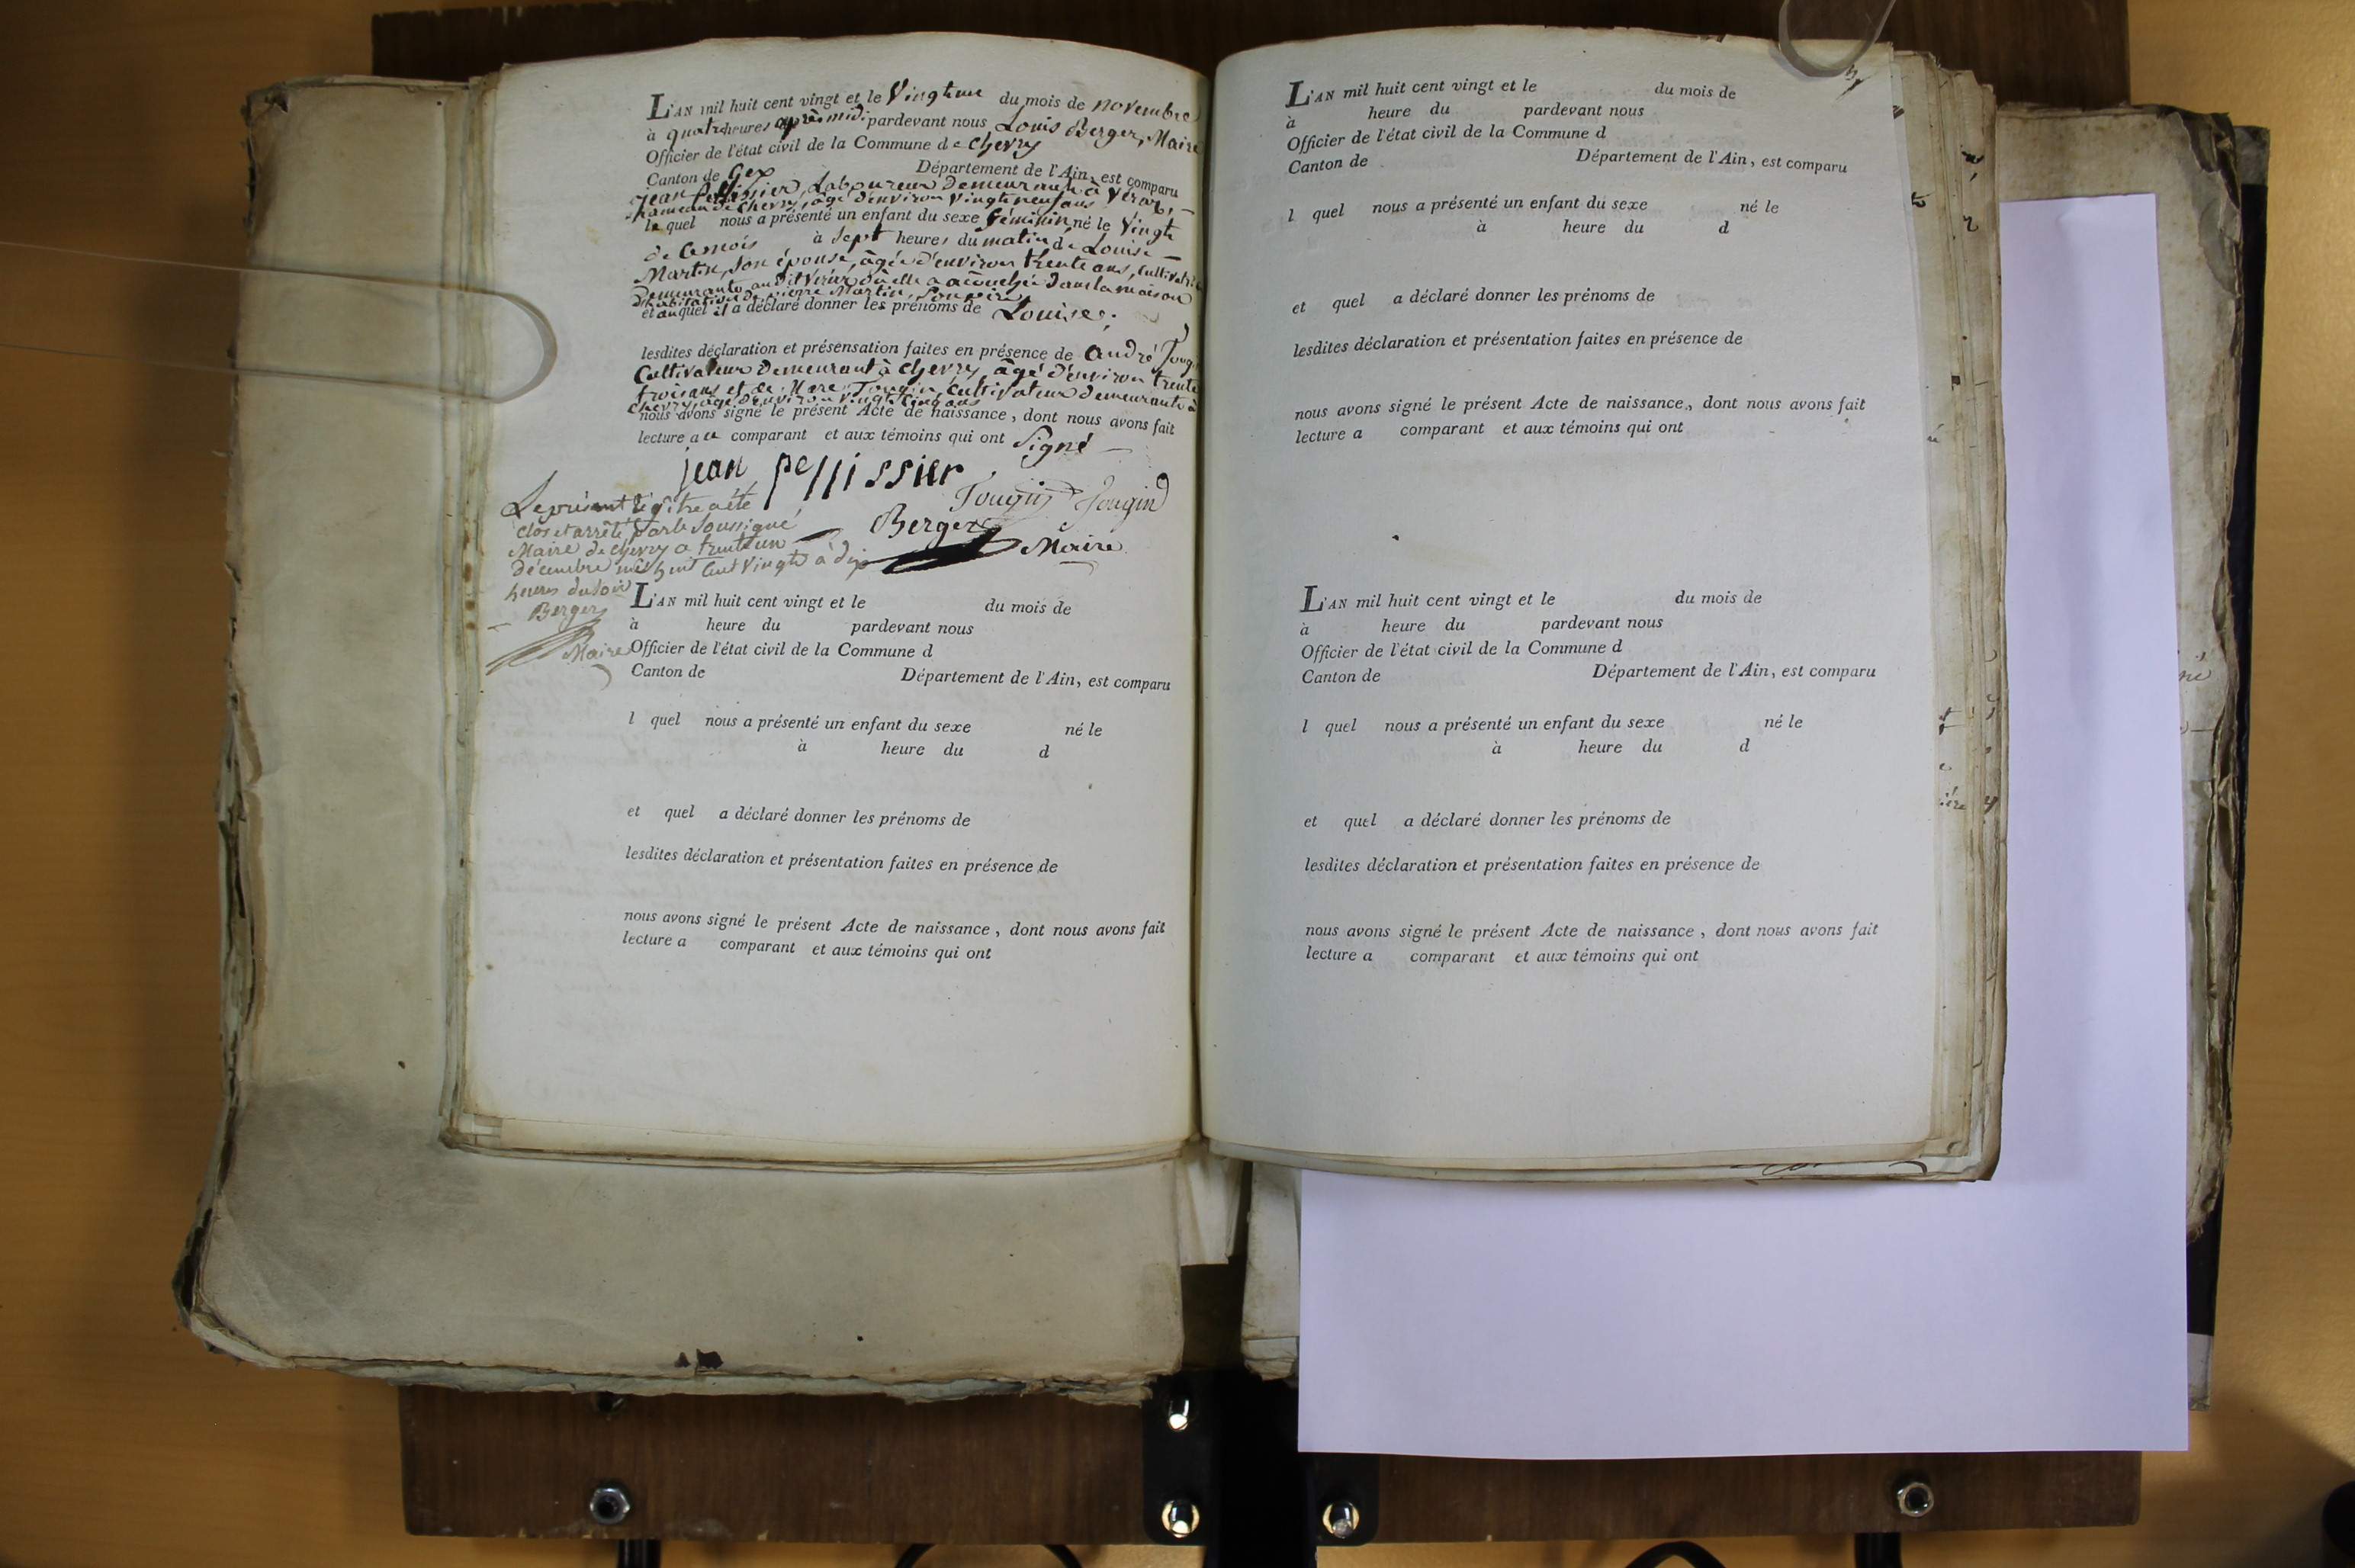 L'AN mil huit cent vingt et le Vingtune du mois de novembre
à quatre heures après midi pardevant nous Louis Berger, Maire
Officier de l'état civil de la Commune de Chevry
Canton de Gex Département de l'Ain, est comparu
jean Pellissier, Laboureur Demeurant à Véraz,
hameau de Chevry, âgé d'environ Vingtneuf ans
lequel nous a présenté un enfant du sexe féminin né le Vingt
de Cemois à Sept heures du matin de Louise
Martin, Son épouse, âgée d'environ trente ans, Cultivatrice
Demeurante audit Véraz où elle a accouchée dans la maison
D'habitation de pierre Martin, Son père
et auquel il a déclaré donner les prénoms de Louise;
lesdites déclaration et présensation faites en présence de André
Cultivateur Demeurant à Chevry, âgé d'environ trente
trois ans et de Marc Tougin Cultivateur demeurant à
Chevry, âgé d'environ vingt Cinq ans
nous avons signé le présent Acte de naissance, dont nous avons fait
lecture au comparant et aux témoins qui ont Signé
jean pellissier
Tougin Tougin
Berger
Maire
Le présent régitre a été
clos et arrêté par le Soussigné
Maire de Chevry a trenteun
décembre mil huit Cent Vingt à dix
heures du Soir
Berger
Maire
L'AN mil huit cent vingt et le du mois de
à heure du pardevant nous
Officier de l'état civil de la Commune d
Canton de Département de l'Ain, est comparu
l quel nous a présenté un enfant du sexe né le
à heure du d
et quel a déclaré donner les prénoms de
lesdites déclaration et présentation faites en présence de
nous avons signé le présent Acte de naissance, dont nous avons fait
lecture a comparant et aux témoins qui ont
L'AN mil huit cent vingt et le du mois de
à heure du pardevant nous
Officier de l'état civil de la Commune d
Canton de Département de l'Ain, est comparu
l quel nous a présenté un enfant du sexe né le
à heure du d
et quel a déclaré donner les prénoms de
lesdites déclaration et présentation faites en présence de
nous avons signé le présent Acte de naissance, dont nous avons fait
lecture a comparant et aux témoins qui ont
L'AN mil huit cent vingt et le du mois de
à heure du pardevant nous
Officier de l'état civil de la Commune d
Canton de Département de l'Ain, est comparu
l quel nous a présenté un enfant du sexe né le
à heure du d
et quel a déclaré donner les prénoms de
lesdites déclaration et présentation faites en présence de
nous avons signé le présent Acte de naissance, dont nous avons fait
lecture a comparant et aux témoins qui ont